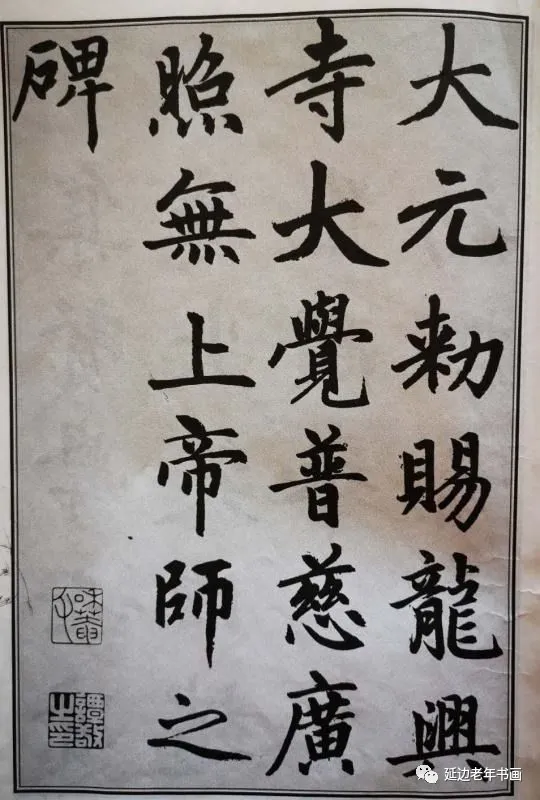 大元勅賜龍興
寺大覺普慈廣
照無上帝師之
碑
譚敬之印
延边老年书画